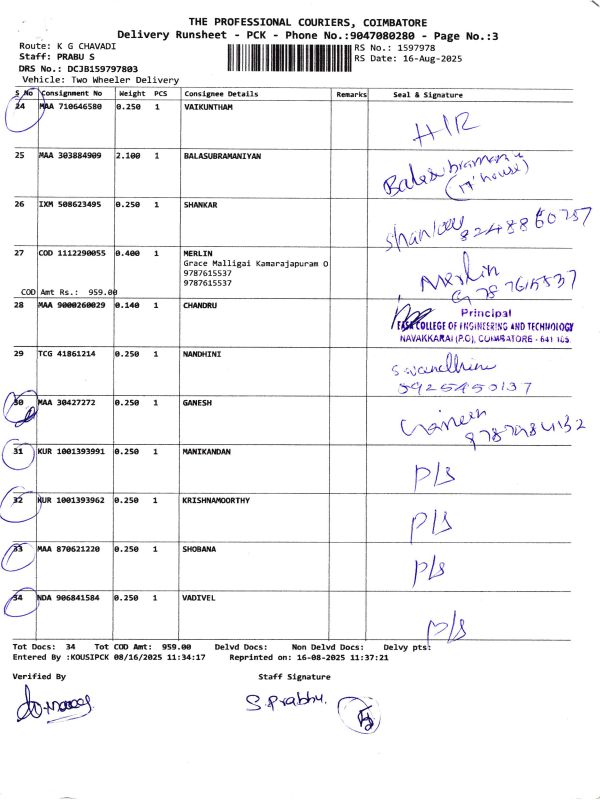 THE PROFESSIONAL COURIERS, COIMBATORE
Delivery Runsheet - PCK - Phone No.:9047080280 - Page No.:3
Route: K G CHAVADI RS No.: 1597978
Staff: PRABU S RS Date: 16-Aug-2025
DRS No.: DCJB159797803
Vehicle: Two Wheeler Delivery
S No Consignment No Weight PCS Consignee Details Remarks Seal & Signature
24 MAA 710646580 0.250 1 VAIKUNTHAM
25 MAA 303884909 2.100 1 BALASUBRAMANIYAN
(H'house)
26 IXM 508623495 0.250 1 SHANKAR
8248860757
27 COD 1112290055 0.400 1 MERLIN Merlin
Grace Malligai Kamarajapuram O
9787615537
9787615537
COD Amt Rs.: 959.00
28 MAA 9000260029 0.140 1 CHANDRU
Principal
EASA COLLEGE OF ENGINEERING AND TECHNOLOGY
NAVAKKARAI (P.O), COIMBATORE - 641 105.
29 TCG 41861214 0.250 1 NANDHINI
30 MAA 30427272 0.250 1 GANESH
31 KUR 1001393991 0.250 1 MANIKANDAN P/S
32 KUR 1001393962 0.250 1 KRISHNAMOORTHY P/S
33 MAA 870621220 0.250 1 SHOBANA P/S
34 NDA 906841584 0.250 1 VADIVEL P/S
Tot Docs: 34 Tot COD Amt: 959.00 Delvd Docs: Non Delvd Docs: Delvy pts:
Entered By :KOUSIPCK 08/16/2025 11:34:17 Reprinted on: 16-08-2025 11:37:21
Verified By Staff Signature
S. Prabhu.